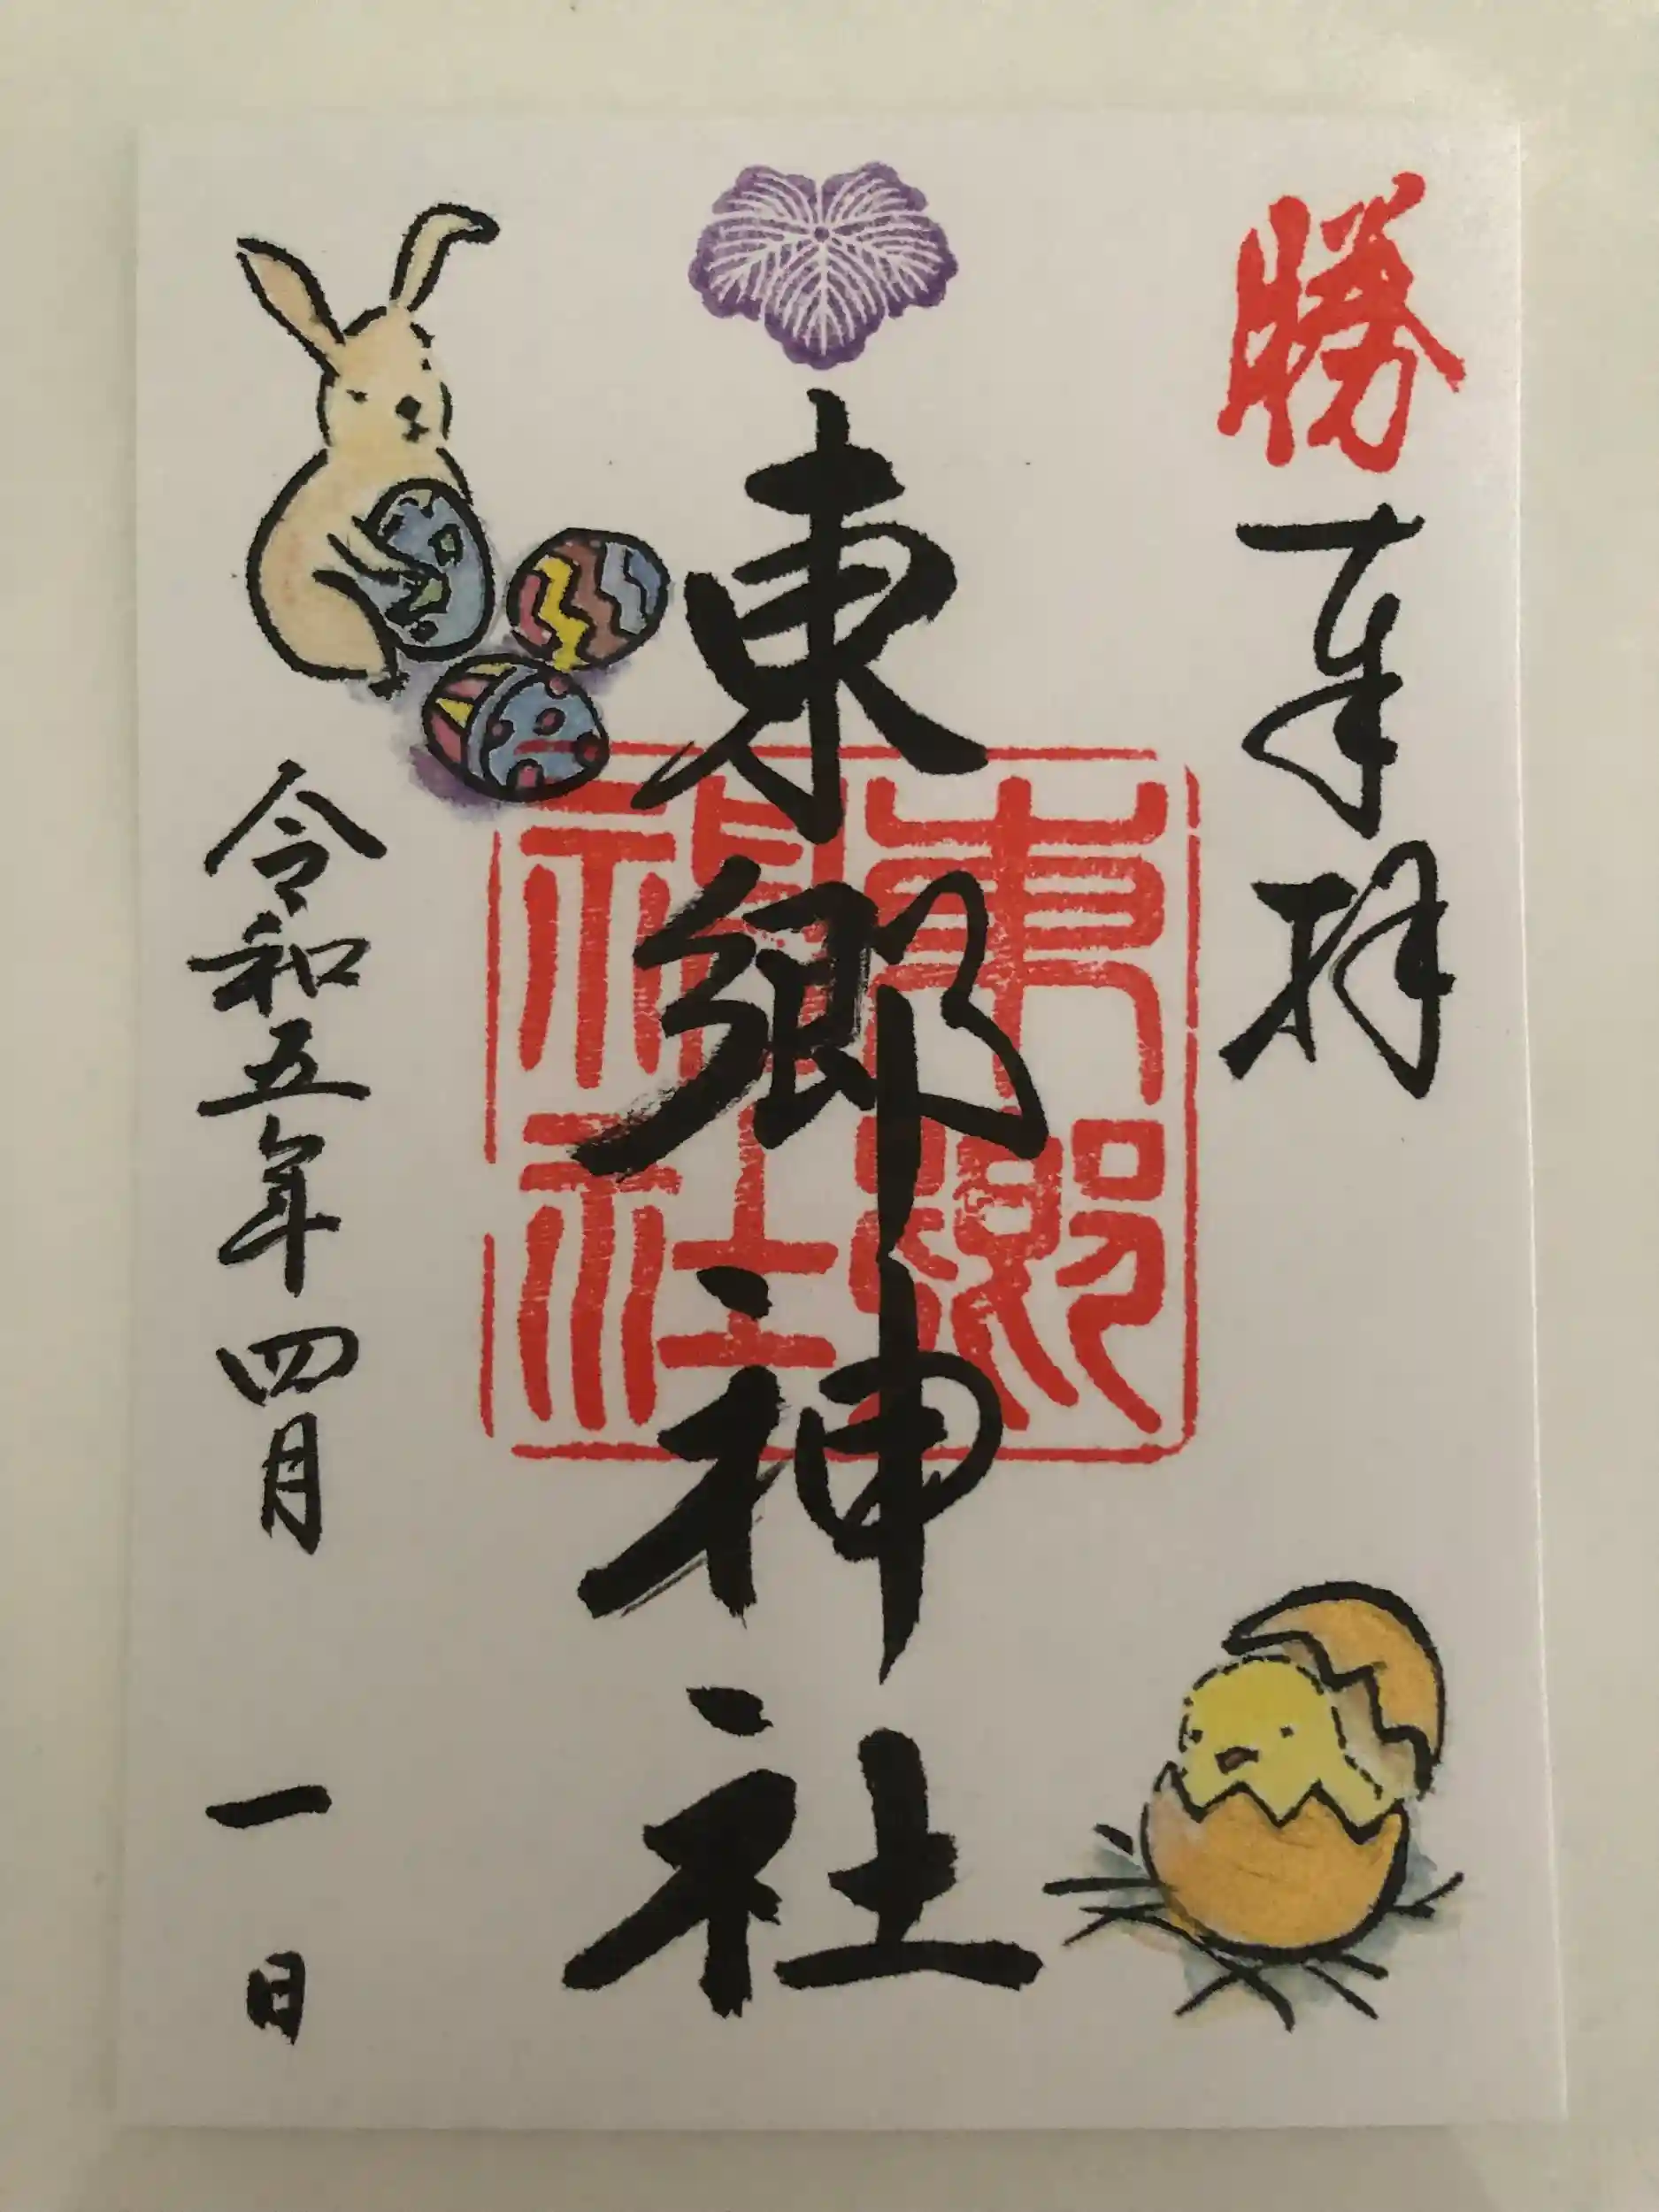 勝
奉拝
東郷神社
東郷神社
令和五年四月一日